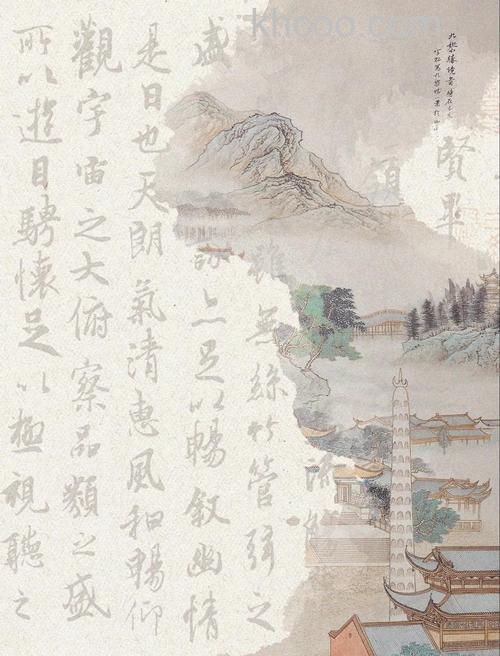 賢畢
雖無絲竹管弦之
盛詠亦足以暢叙幽情
是日也天朗氣清惠風和暢仰
觀宇宙之大俯察品類之盛
所以遊目騁懷足以極視聽之